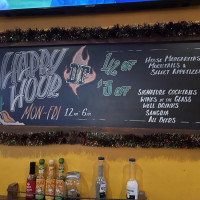 HAPPY
HOUR
MON-FRI 12PM-6PM
$2 OFF
House Margaritas
Mocktails &
Select Appetizers
$1 OFF
Signature Cocktails
Wines by the Glass
Well Drinks
Sangria
All Beers